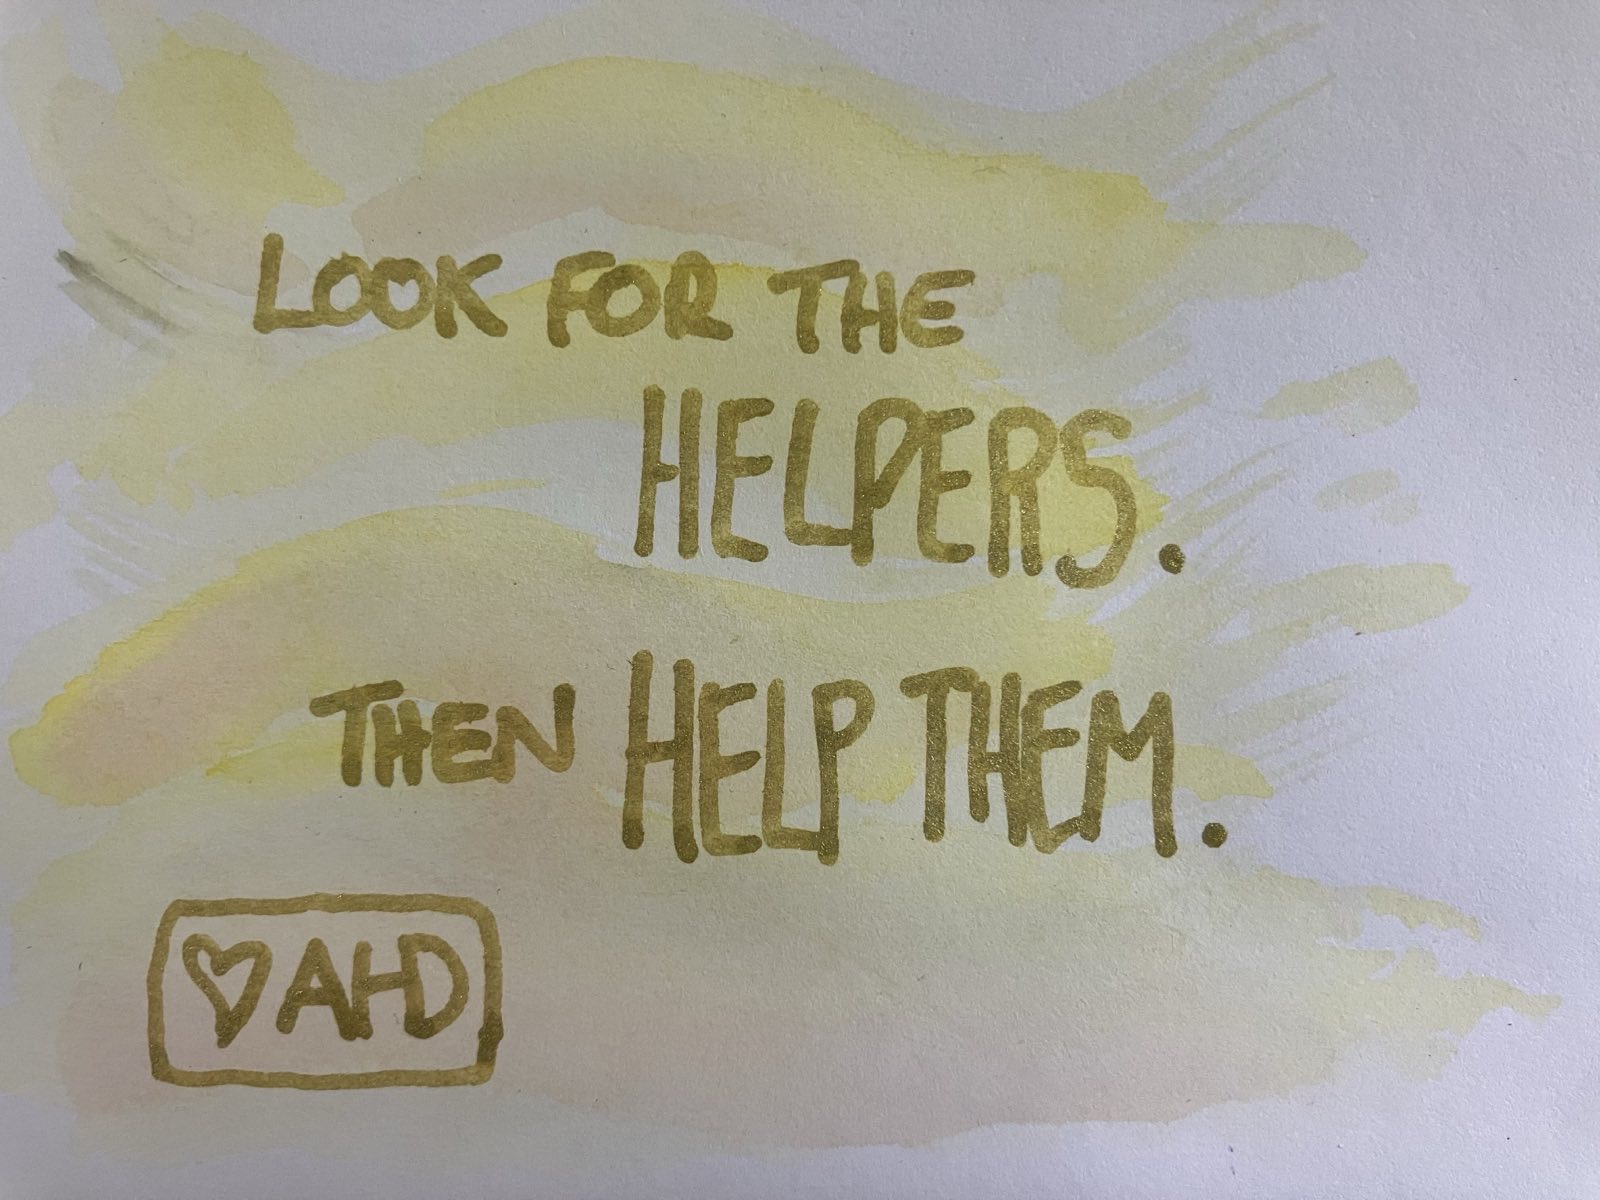 LOOK FOR THE
HELPERS.
THEN HELP THEM.
♡AHD